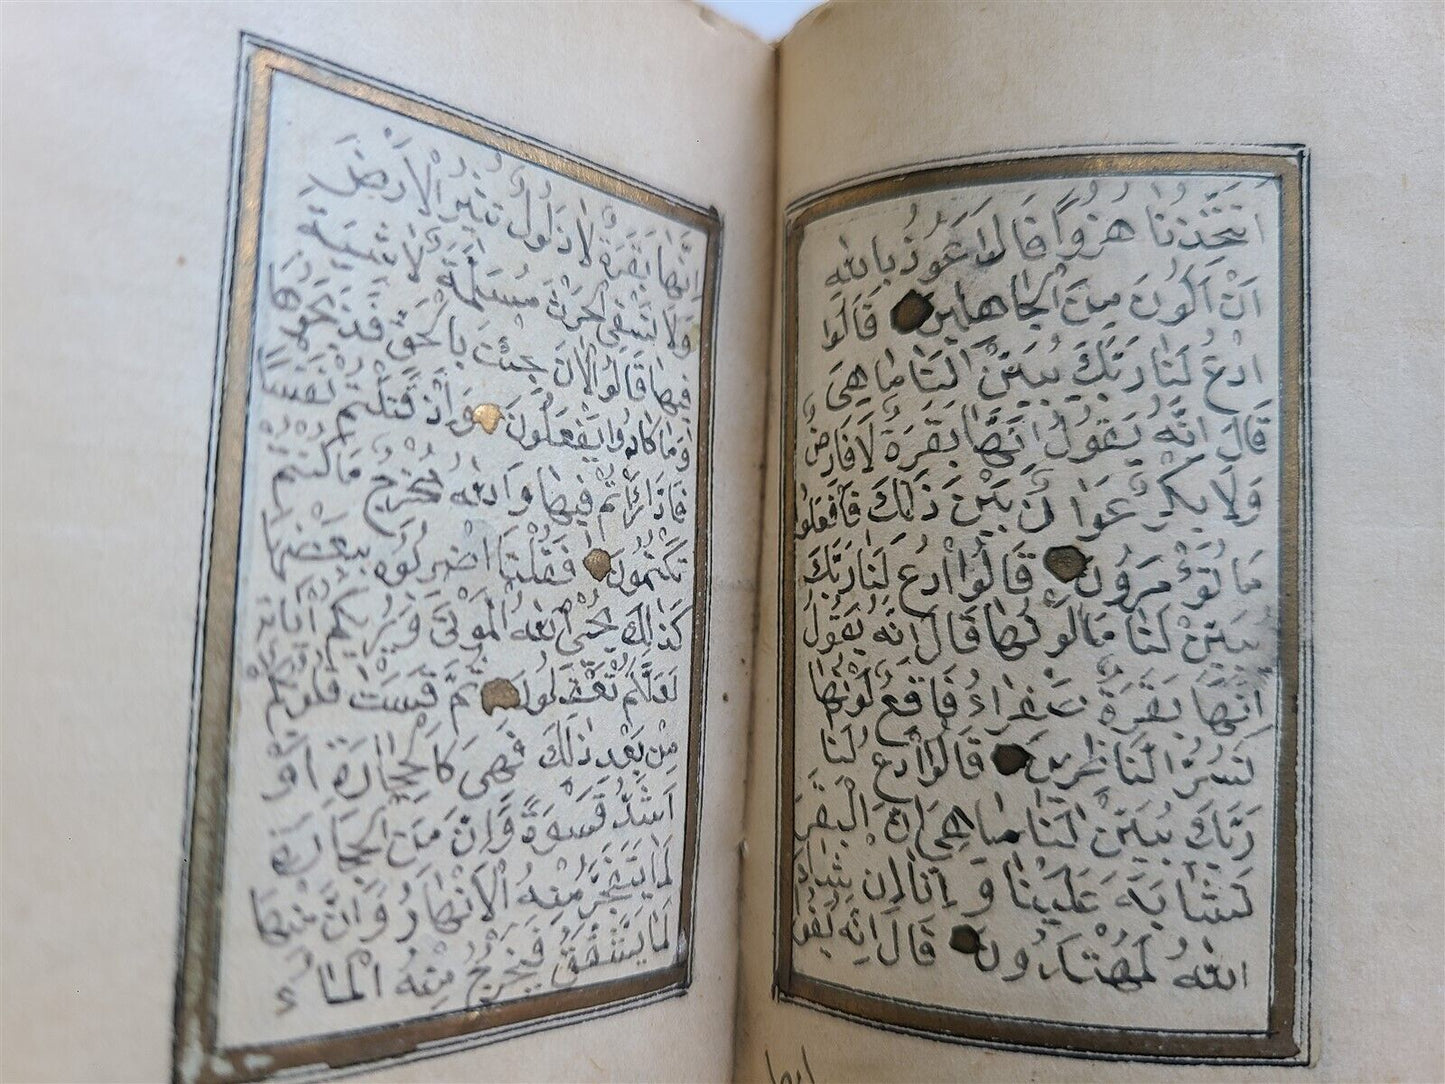 اَتَتَّخِذُنَا هُزُوًا قَالَ اَعُوذُ بِاللّٰهِ
اَنْ اَكُونَ مِنَ الْجَاهِلِينَ قَالُوا
ادْعُ لَنَا رَبَّكَ يُبَيِّنْ لَنَا مَا هِيَ
قَالَ اِنَّهُ يَقُولُ اِنَّهَا بَقَرَةٌ لَا فَارِضٌ
وَلَا بِكْرٌ عَوَانٌ بَيْنَ ذٰلِكَ فَافْعَلُوا
مَا تُؤْمَرُونَ قَالُوا ادْعُ لَنَا رَبَّكَ
يُبَيِّنْ لَنَا مَا لَوْنُهَا قَالَ اِنَّهُ يَقُولُ
اِنَّهَا بَقَرَةٌ صَفْرَاءُ فَاقِعٌ لَوْنُهَا
تَسُرُّ النَّاظِرِينَ قَالُوا ادْعُ لَنَا
رَبَّكَ يُبَيِّنْ لَنَا مَا هِيَ اِنَّ الْبَقَرَ
تَشَابَهَ عَلَيْنَا وَاِنَّا اِنْ شَاءَ
اللّٰهُ لَمُهْتَدُونَ قَالَ اِنَّهُ يَقُولُ
اِنَّهَا بَقَرَةٌ لَا ذَلُولٌ تُثِيرُ الْاَرْضَ
وَلَا تَسْقِى الْحَرْثَ مُسَلَّمَةٌ لَا شِيَةَ
فِيهَا قَالُوا الْاٰنَ جِئْتَ بِالْحَقِّ فَذَبَحُوهَا
وَمَا كَادُوا يَفْعَلُونَ وَاِذْ قَتَلْتُمْ نَفْسًا
فَادَّارَأْتُمْ فِيهَا وَاللّٰهُ مُخْرِجٌ مَا كُنْتُمْ
تَكْتُمُونَ فَقُلْنَا اضْرِبُوهُ بِبَعْضِهَا
كَذٰلِكَ يُحْيِى اللّٰهُ الْمَوْتٰى وَيُرِيكُمْ اٰيَاتِهِ
لَعَلَّكُمْ تَعْقِلُونَ ثُمَّ قَسَتْ قُلُوبُكُمْ
مِنْ بَعْدِ ذٰلِكَ فَهِيَ كَالْحِجَارَةِ اَوْ
اَشَدُّ قَسْوَةً وَاِنَّ مِنَ الْحِجَارَةِ
لَمَا يَتَفَجَّرُ مِنْهُ الْاَنْهَارُ وَاِنَّ مِنْهَا
لَمَا يَشَّقَّقُ فَيَخْرُجُ مِنْهُ الْمَاءُ